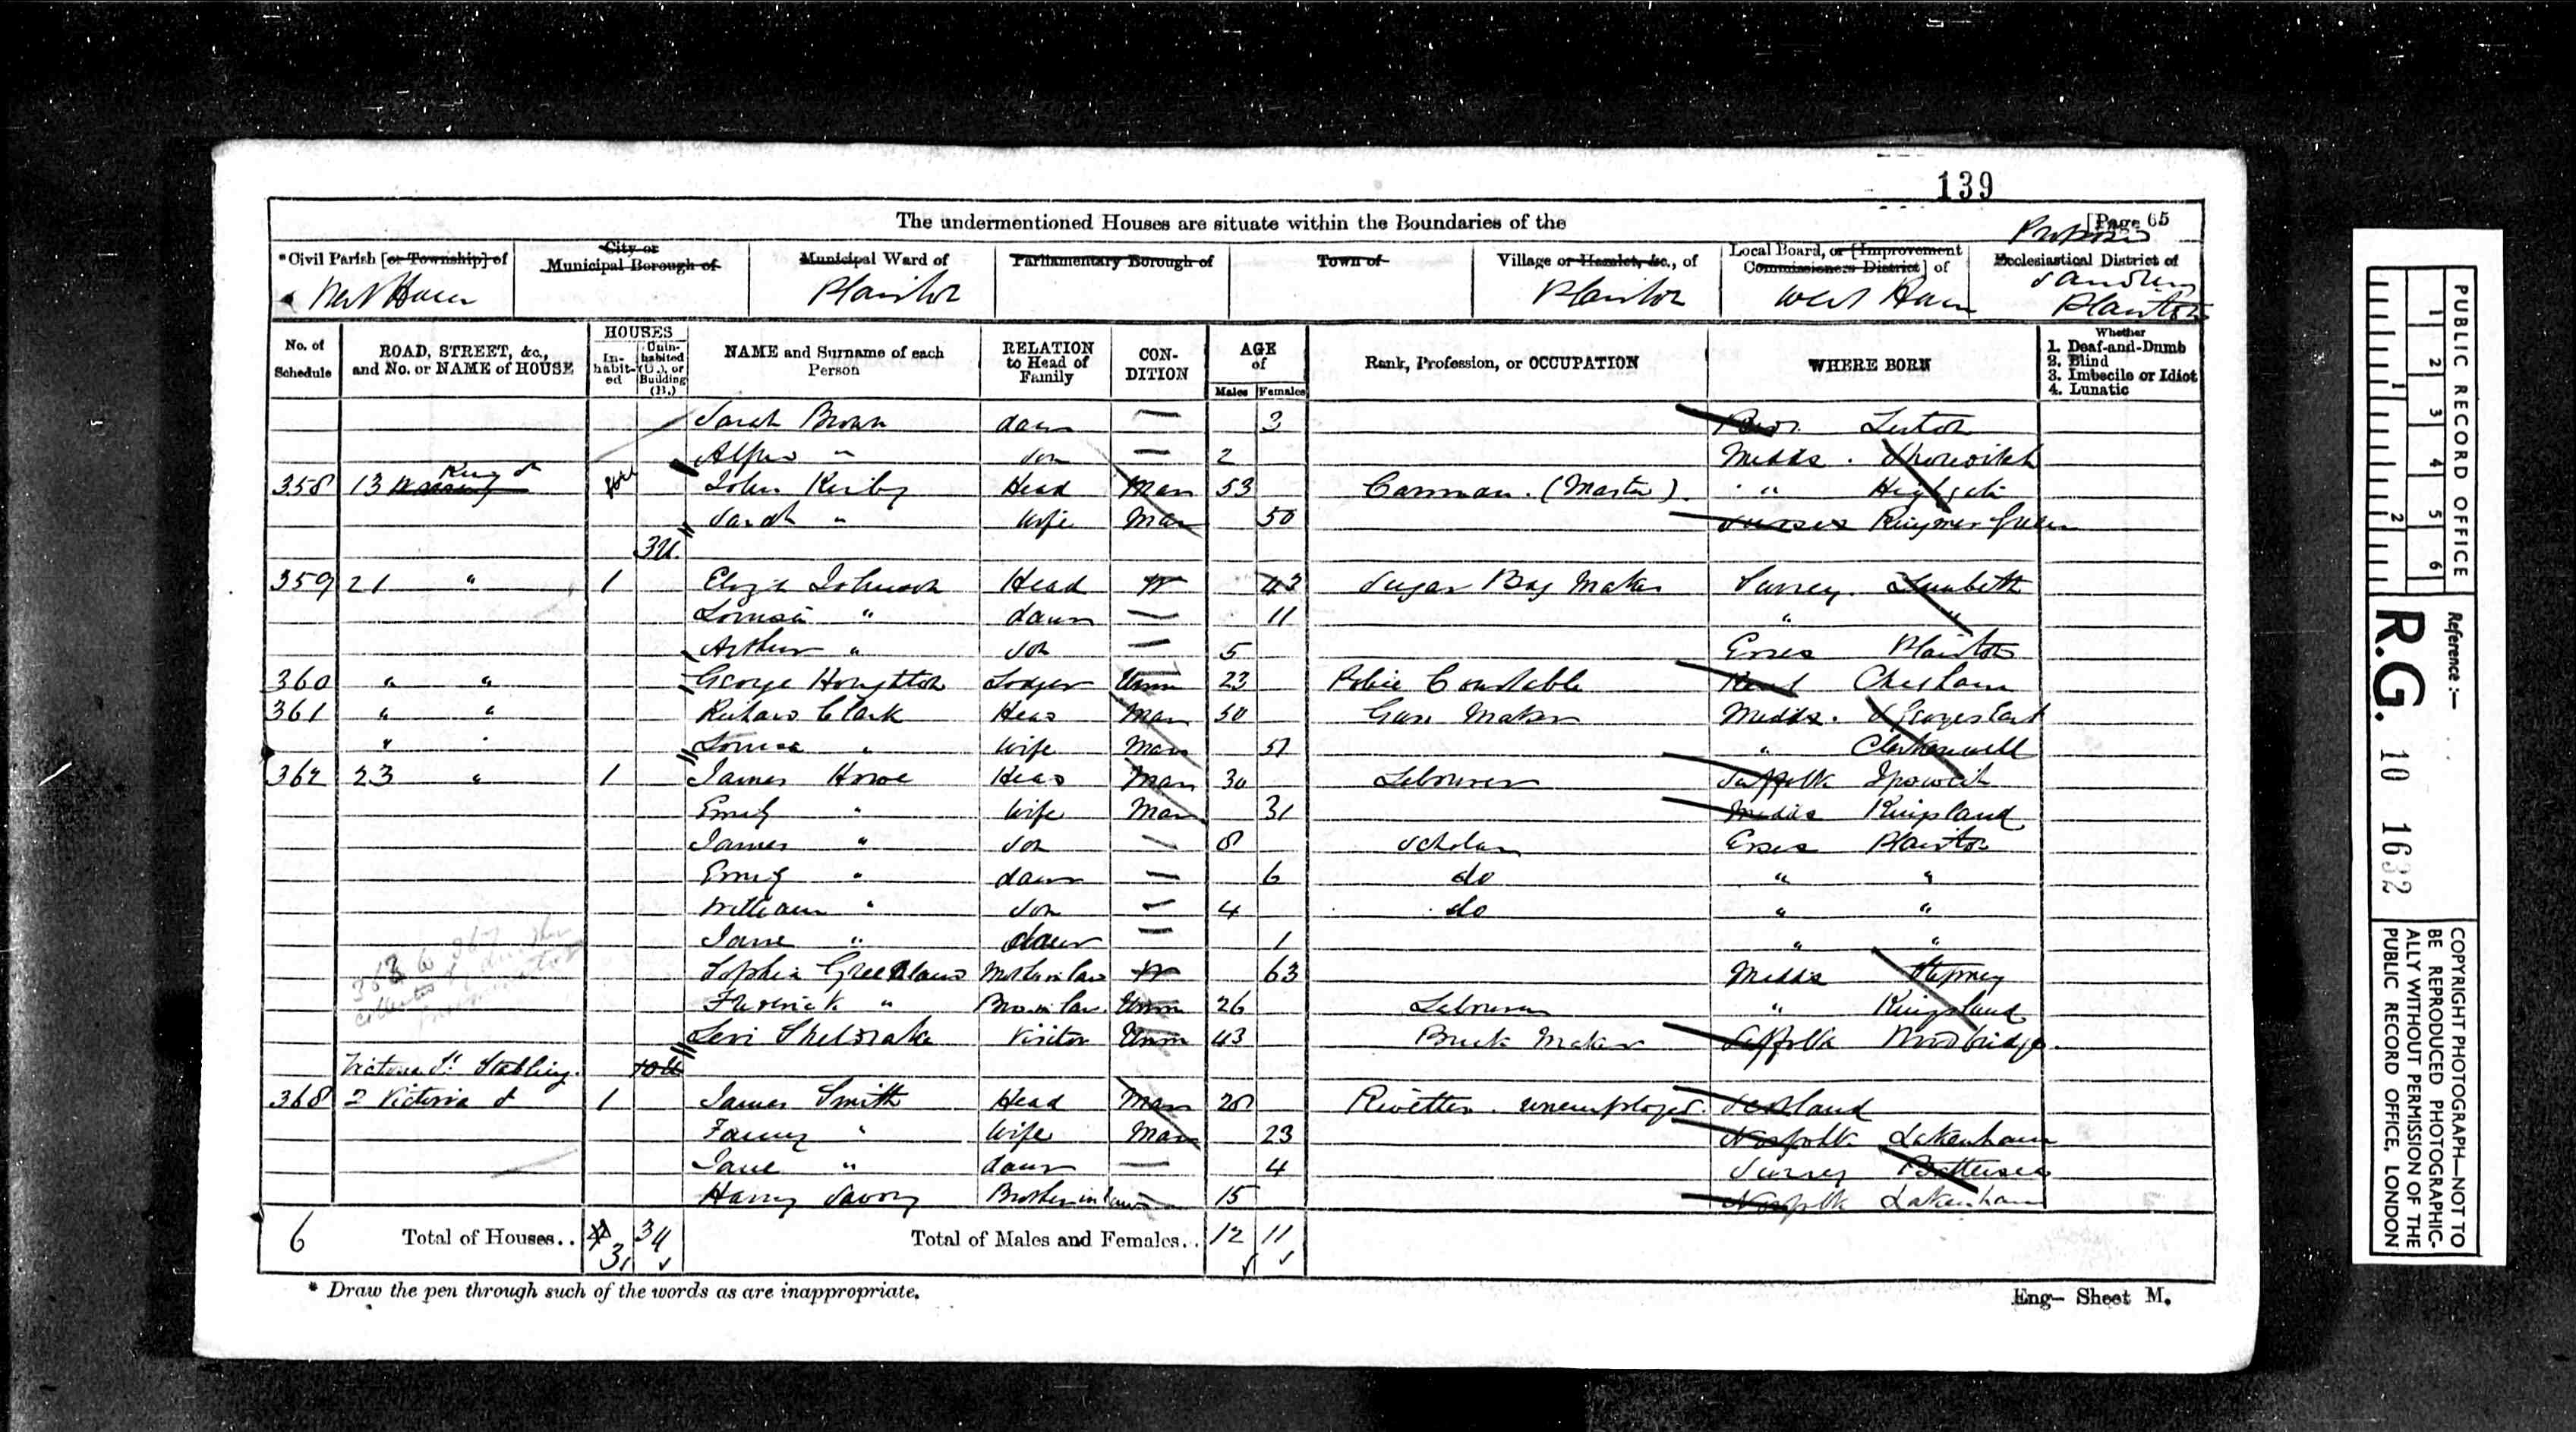 139
The undermentioned Houses are situate within the Boundaries of the [Page 65
*Civil Parish [or Township] of City or Municipal Borough of Municipal Ward of Parliamentary Borough of Town of Village or Hamlet, &c., of Local Board, or [Improvement Commissioners District] of Ecclesiastical District of
West Ham Plaistow Plaistow West Ham Plaistow
No. of Schedule ROAD, STREET, &c., and No. or NAME of HOUSE HOUSES In-habit-ed Unin-habited (U.), or Building (B.) NAME and Surname of each Person RELATION to Head of Family CON-DITION AGE of Males Females Rank, Profession, or OCCUPATION WHERE BORN Whether 1. Deaf-and-Dumb 2. Blind 3. Imbecile or Idiot 4. Lunatic
Sarah Brown daur — 3 Luton
Alfred " son — 2 Middx.
358 13 King St John Kirby Head Mar 53 Carman. (Master). " Highgate
Sarah " Wife Mar 50 Sussex Ringmer Green
3U.
359 21 " 1 Eliza Johnson Head W 43 Sugar Bag Maker Surrey. Lambeth
Louisa " daur — 11 " "
Arthur " son — 5 Essex Plaistow
360 " " George Houghton Lodger Unm 23 Police Constable Kent Chesham
361 " " Richard Clark Head Mar 50 Gun Maker Middx. St Georges East
" Louisa " Wife Mar 51 " Clerkenwell
362 23 " 1 James Howe Head Mar 30 Labourer Suffolk Ipswich
Emily " Wife Mar 31 Middx Kingsland
James " son — 8 Scholar Essex Plaistow
Emily " daur — 6 do " "
William " son — 4 do " "
Jane " daur — 1 " "
Sophia Greenlaws Mother in law W 63 Middx Stepney
Frederick " Bro in law. Unm 26 Labourer " Kingsland
Levi Sheldrake Visitor Unm 43 Brick Maker Suffolk Woodbridge.
Victoria St Stabling. 10U
368 2 Victoria St 1 James Smith Head Mar 28 Rivetter. unemployed. Scotland
Fanny " Wife Mar 23 Norfolk Lakenham
Jane " daur — 4 Surrey Battersea
Harry Savory Brother in law — 15 Norfolk Lakenham
6 Total of Houses.. 3 Total of Males and Females.. 12 11
* Draw the pen through such of the words as are inappropriate.
Eng— Sheet M.
PUBLIC RECORD OFFICE
1 2 3 4 5 6
1 2
Reference :—
R.G. 10 1632
COPYRIGHT PHOTOGRAPH—NOT TO
BE REPRODUCED PHOTOGRAPHIC-
ALLY WITHOUT PERMISSION OF THE
PUBLIC RECORD OFFICE, LONDON